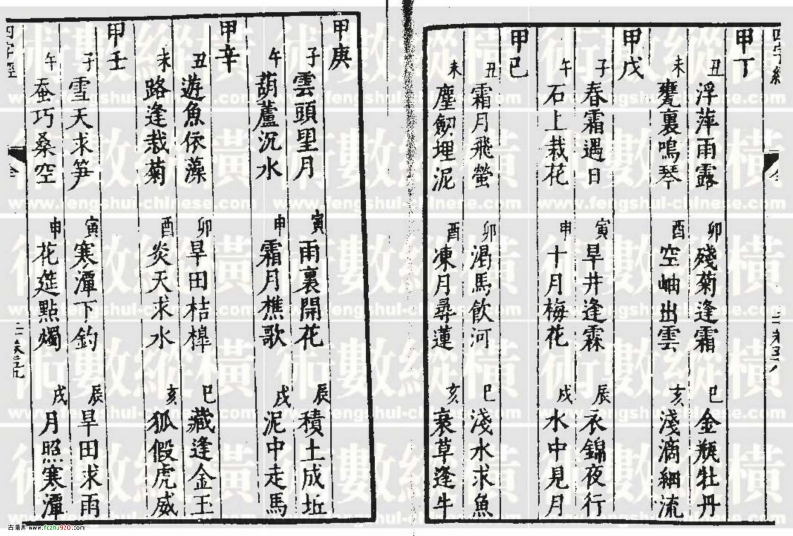 四字經
甲丁
丑 浮萍雨露 卯 殘菊逢霜 巳 金瓶牡丹
未 甕裏鳴琴 酉 空岫出雲 亥 淺滴細流
甲戊
子 春霜遇日 寅 旱井逢霖 辰 衣錦夜行
午 石上栽花 申 十月梅花 戌 水中見月
甲己
丑 霜月飛螢 卯 渴馬飲河 巳 淺水求魚
未 塵劒埋泥 酉 凍月尋蓮 亥 衰草逢牛
甲庚
子 雲頭里月 寅 雨裏開花 辰 積土成坵
午 葫蘆沉水 申 霜月樵歌 戌 泥中走馬
甲辛
丑 遊魚依藻 卯 旱田桔槔 巳 藏逢金玉
未 路逢栽菊 酉 炎天求水 亥 狐假虎威
甲壬
子 雪天求笋 寅 寒潭下釣 辰 旱田求雨
午 蚕巧桑空 申 花筵點燭 戌 月照寒潭
四字經
術數縱橫
www.fengshui-chinese.com